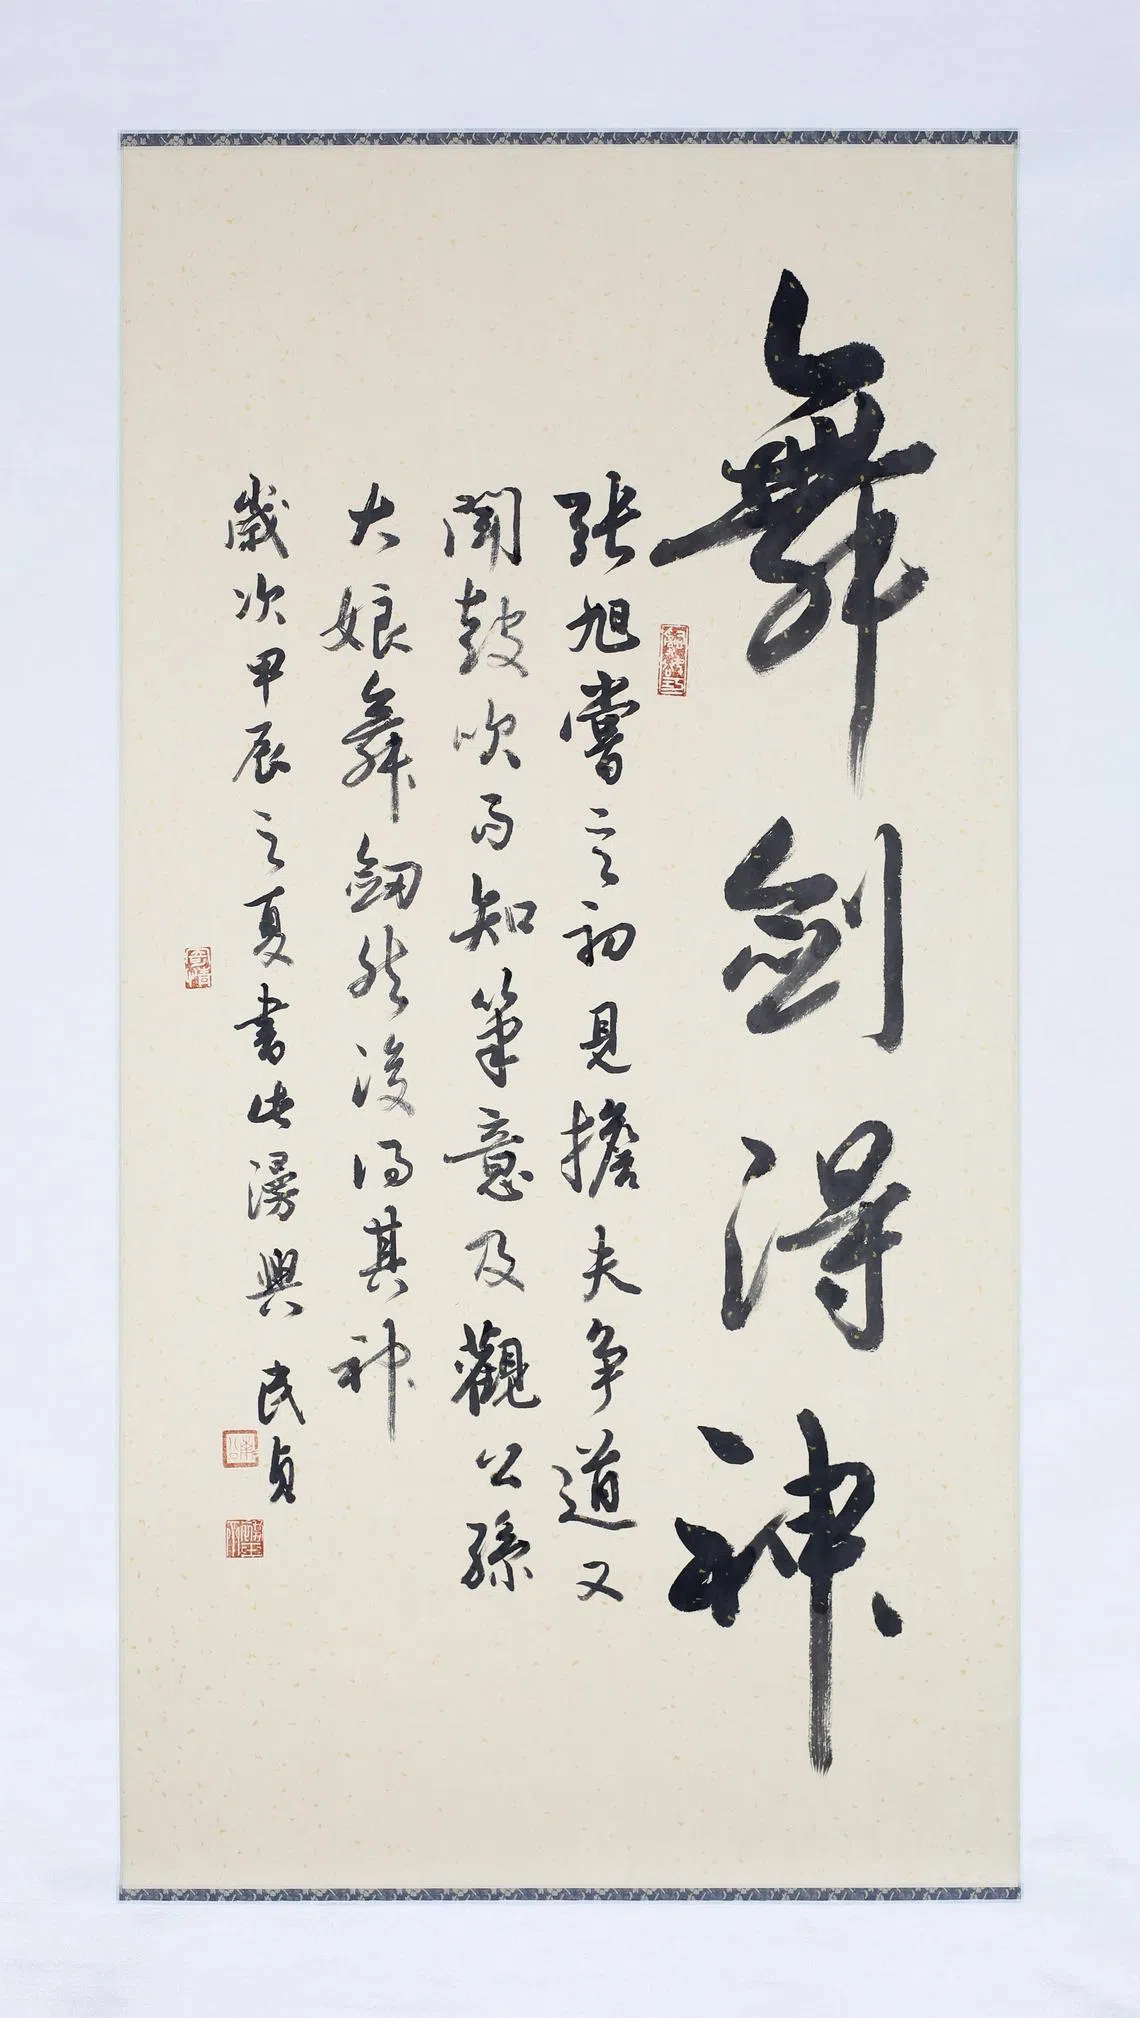 舞劍得神
張旭嘗言初見擔夫爭道又
聞鼓吹而知筆意及觀公孫
大娘舞劒然後得其神
歲次甲辰之夏書此漫興 民貞